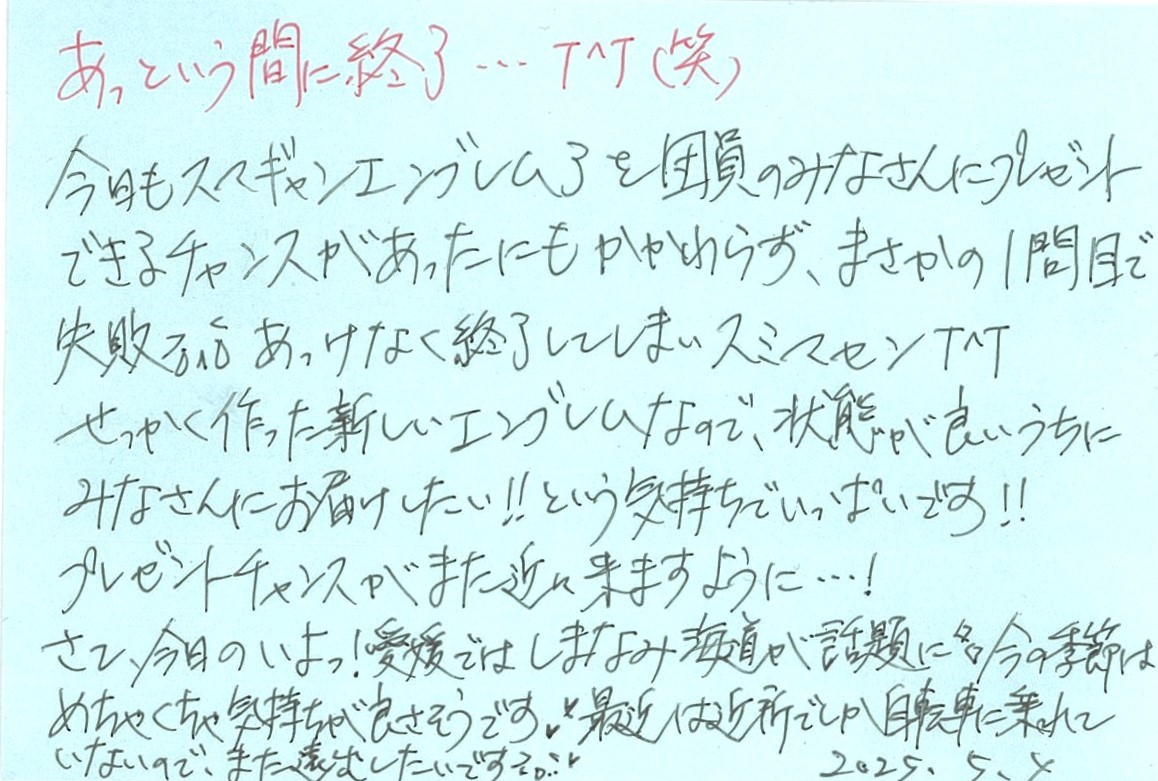 あっという間に終了… T^T (笑)
今日もスマギャンエンブレム了を団員のみなさんにプレゼント
できるチャンスがあったにもかかわらず、まさかの1問目で
失敗 あっけなく終了してしまいスミマセンT^T
せっかく作った新しいエンブレムなので、状態が良いうちに
みなさんにお届けしたい!!という気持ちでいっぱいです!!
プレゼントチャンスがまた近々来ますように…!
さて、今日のいよっ!愛媛ではしまなみ海道が話題に 今の季節は
めちゃくちゃ気持ちが良さそうです 最近は近所でしか自転車に乗れて
いないので、また遠出したいですぞ
2025. 5. 4